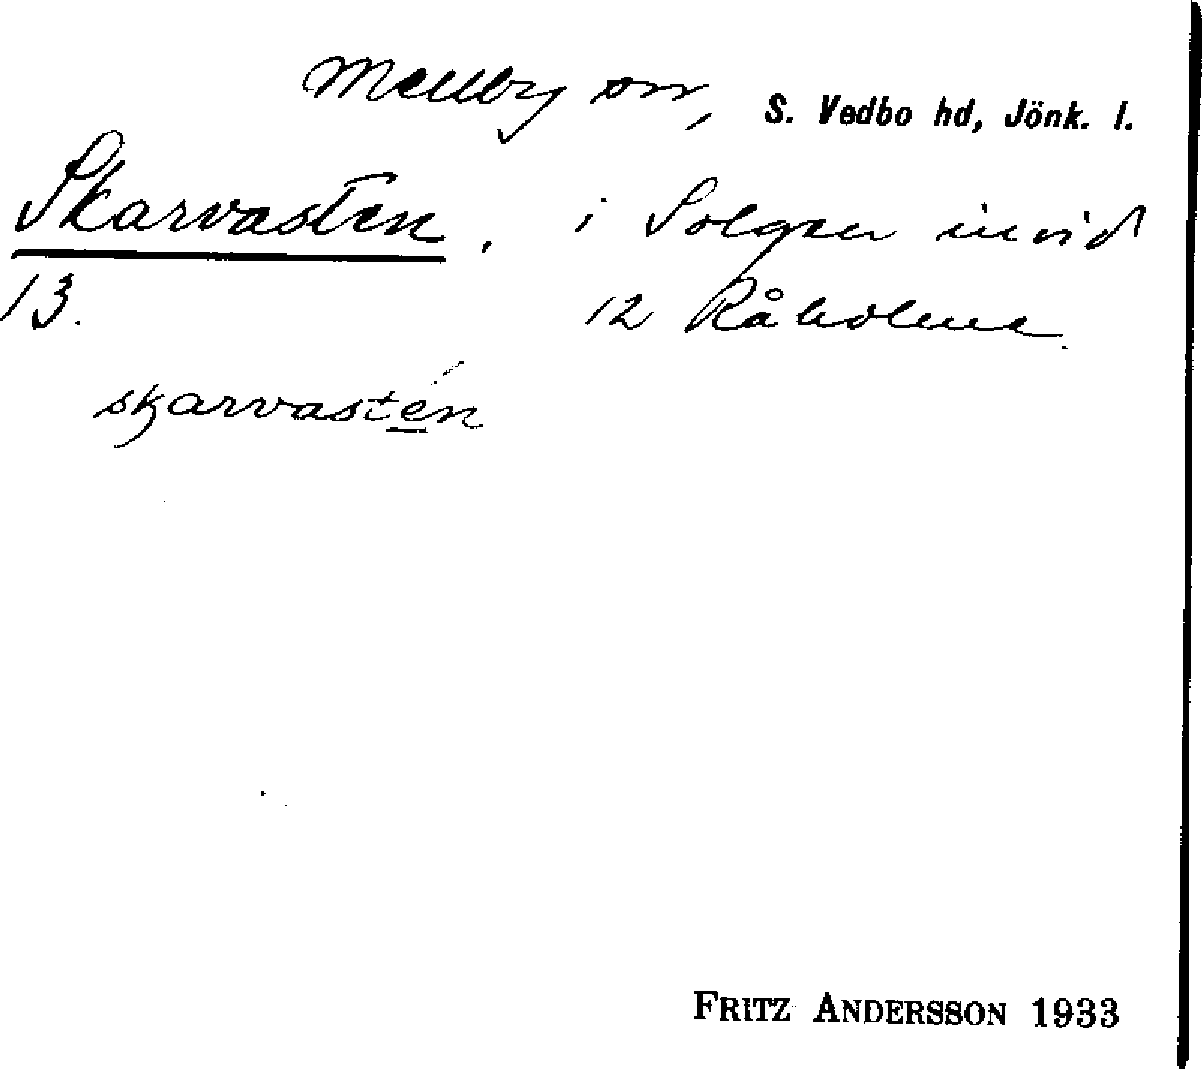 Mellby sn, S. Vedbo hd, Jönk. l.
Skarvasten, i Solgen invid
13. 12 Råholmen.
skarvastén
FRITZ ANDERSSON 1933